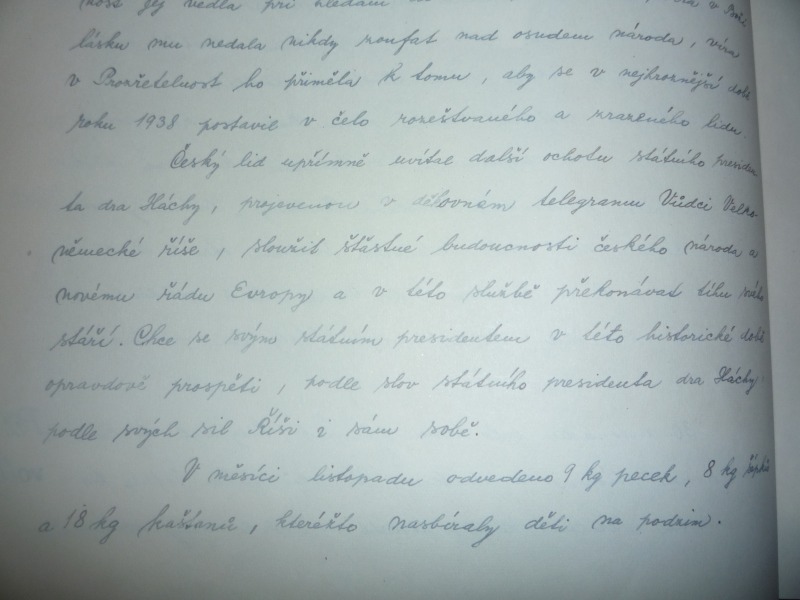 nost jej vedla při hledání
lásku mu nedala nikdy zoufat nad osudem národa, víra
v Prozřetelnost ho přiměla k tomu, aby se v nejhroznější době
roku 1938 postavil v čelo rozeštvaného a zrazeného lidu.
Český lid upřímně uvítal další ochotu státního presiden
ta dra Háchy, projevenou v děkovném telegramu Vůdci Velko
německé říše, sloužit šťastné budoucnosti českého národa a
novému řádu Evropy a v této službě překonávat tíhu svého
stáří. Chce se svým státním presidentem v této historické době
opravdově prospěti, podle slov státního presidenta dra Háchy
podle svých sil Říši i sám sobě.
V měsíci listopadu odvedeno 9 kg pecek, 8 kg šípků
a 18 kg kaštanů, kteréžto nasbíraly děti na podzim.